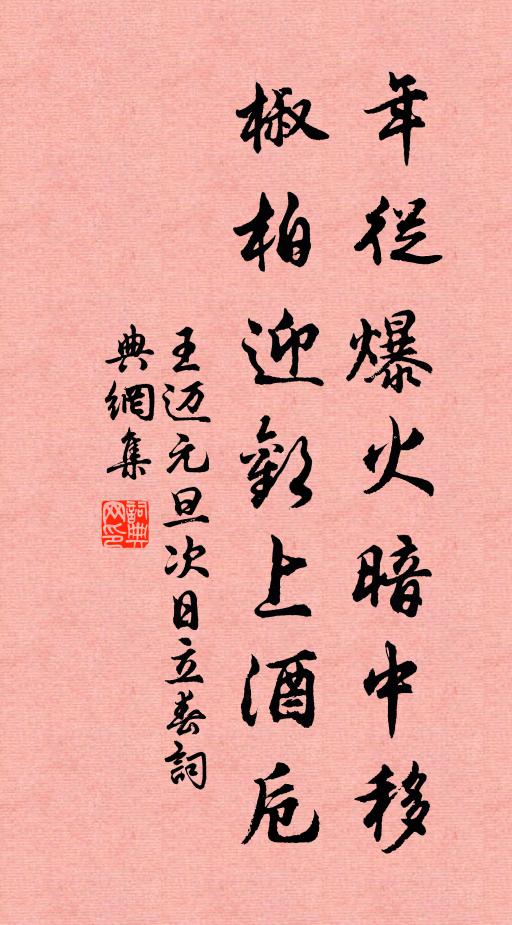 年從爆火暗中移
椒柏迎歡上酒卮
王迈元旦次日立春詞
典網集
詞典网印